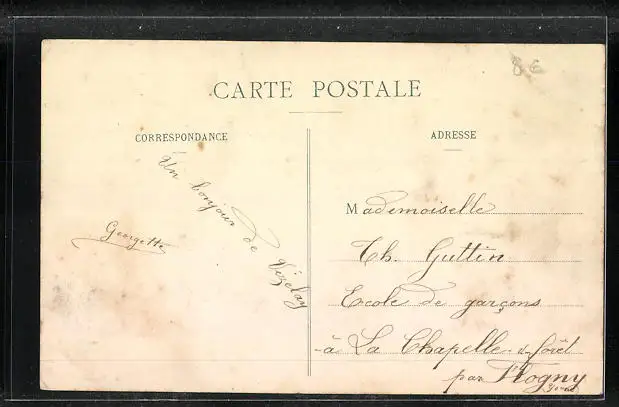 8€
CARTE POSTALE
CORRESPONDANCE
ADRESSE
Un bonjour de Vézelay
Georgette
Mademoiselle
Th. Guttin
Ecole de garçons
à La Chapelle
par Flogny
Yonne